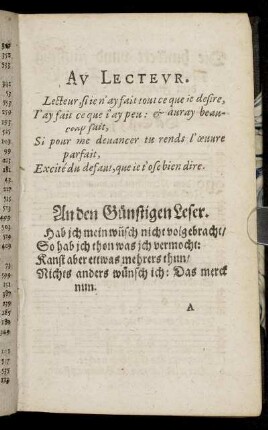 AV LECTEVR.
Lecteur, si ie n'ay fait tout ce que ie desire,
I'ay fait ce que i'ay peu: & auray beau-
coup fait,
Si pour me deuancer tu rends l'œuure
parfait,
Excité du defaut, que ie t'ose bien dire.
An den Günstigen Leser.
Hab jch mein wüsch nicht volgebracht/
So hab jch thon was jch vermocht:
Kanst aber ettwas mehrers thun/
Nichts anders wünsch ich: Das merck
nun.
A